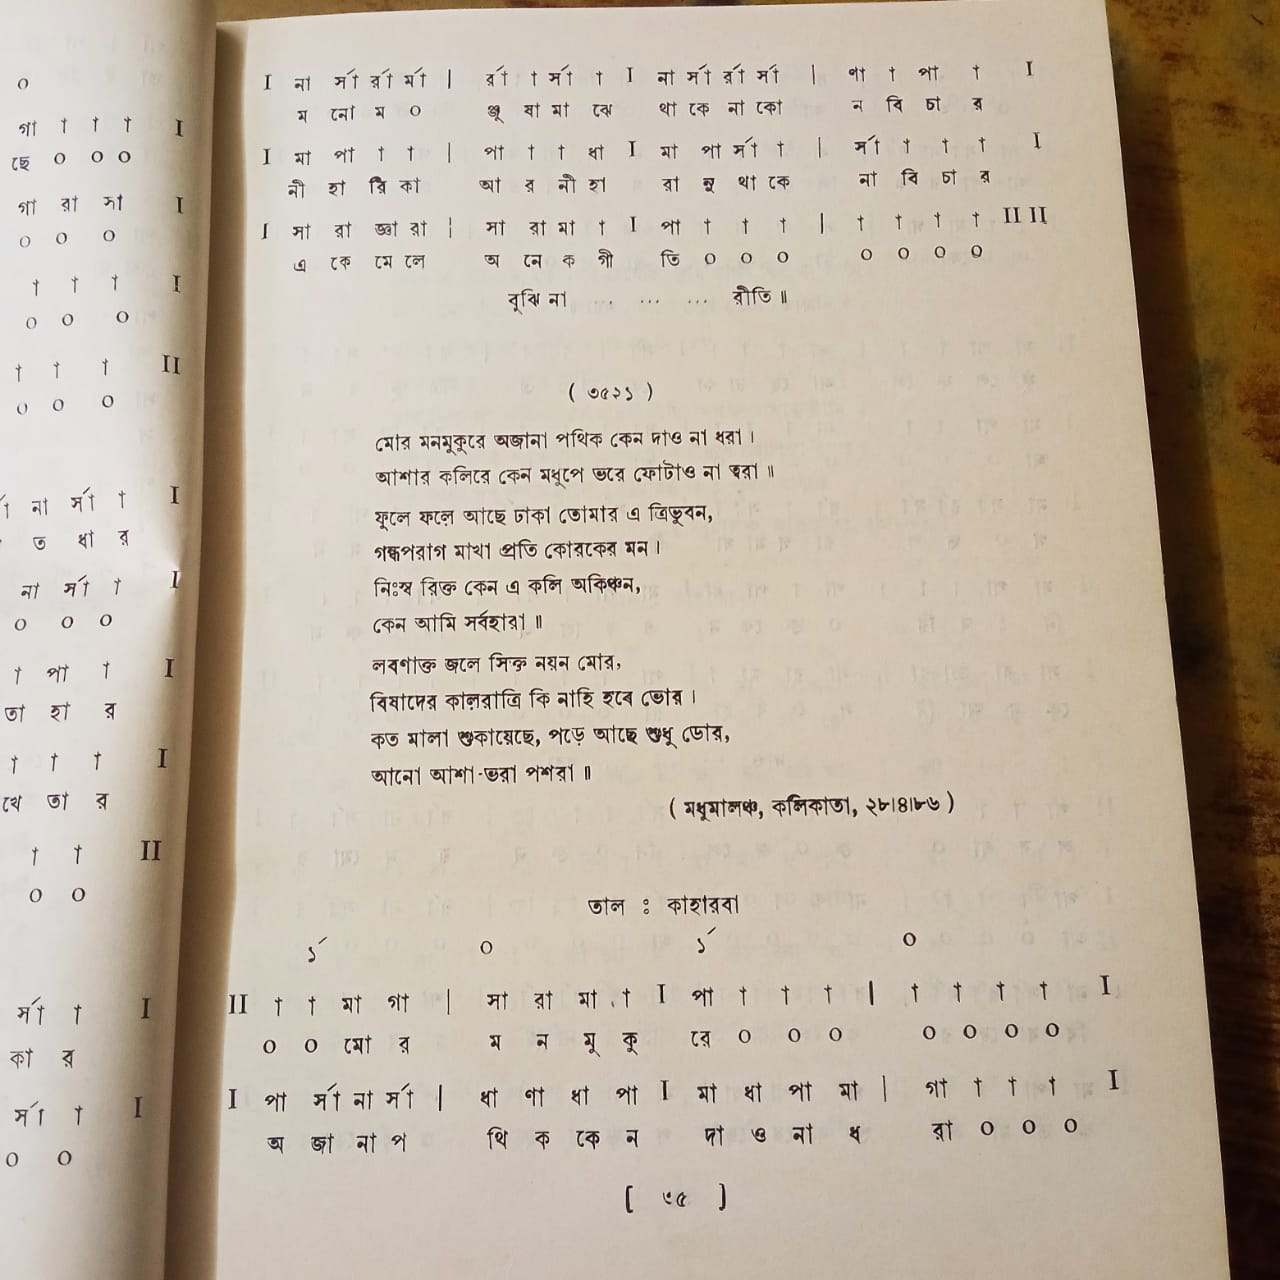 ০
গা † † † I
ছে ০ ০ ০
গা রা সা I
০ ০ ০
† † † I
০ ০ ০
† † † II
০ ০ ০
না র্সা † I
ত ধা র
না র্সা † I
০ ০ ০
† পা † I
তা হা র
† † † I
খে তা র
† † II
০ ০
র্সা † I
কা র
র্সা † I
০ ০
I না র্সা র্রা র্মা | র্রা † র্সা † I না র্সা র্রা র্সা | ণা † পা † I
ম নো ম ০ ঞ্জু ষা মা ঝে থা কে না কো ন বি চা র
I মা পা † † | পা † † ধা I মা পা র্সা † | র্সা † † † I
নী হা রি কা আ র নী হা রা নু থা কে না বি চা র
I সা রা জ্ঞা রা | সা রা মা † I পা † † † | † † † † II II
এ কে মে লে অ নে ক গী তি ০ ০ ০ ০ ০ ০ ০
বুঝি না ... ... ... রীতি ॥
( ৩৫২১ )
মোর মনমুকুরে অজানা পথিক কেন দাও না ধরা ।
আশার কলিরে কেন মধুপে ভরে ফোটাও না ত্বরা ॥
ফুলে ফলে আছে ঢাকা তোমার এ ত্রিভুবন,
গন্ধপরাগ মাখা প্রতি কোরকের মন ।
নিঃস্ব রিক্ত কেন এ কলি অকিঞ্চন,
কেন আমি সর্বহারা ॥
লবণাক্ত জলে সিক্ত নয়ন মোর,
বিষাদের কালরাত্রি কি নাহি হবে ভোর ।
কত মালা শুকায়েছে, পড়ে আছে শুধু ডোর,
আনো আশা-ভরা পশরা ॥
( মধুমালঞ্চ, কলিকাতা, ২৮।৪।৮৬ )
তাল : কাহারবা
১´ ০ ১´ ০
II † † মা গা | সা রা মা † I পা † † † | † † † † I
০ ০ মো র ম ন মু কু রে ০ ০ ০ ০ ০ ০ ০
I পা র্সা না র্সা | ধা ণা ধা পা I মা ধা পা মা | গা † † † I
অ জা না প থি ক কে ন দা ও না ধ রা ০ ০ ০
[ ৩৫ ]